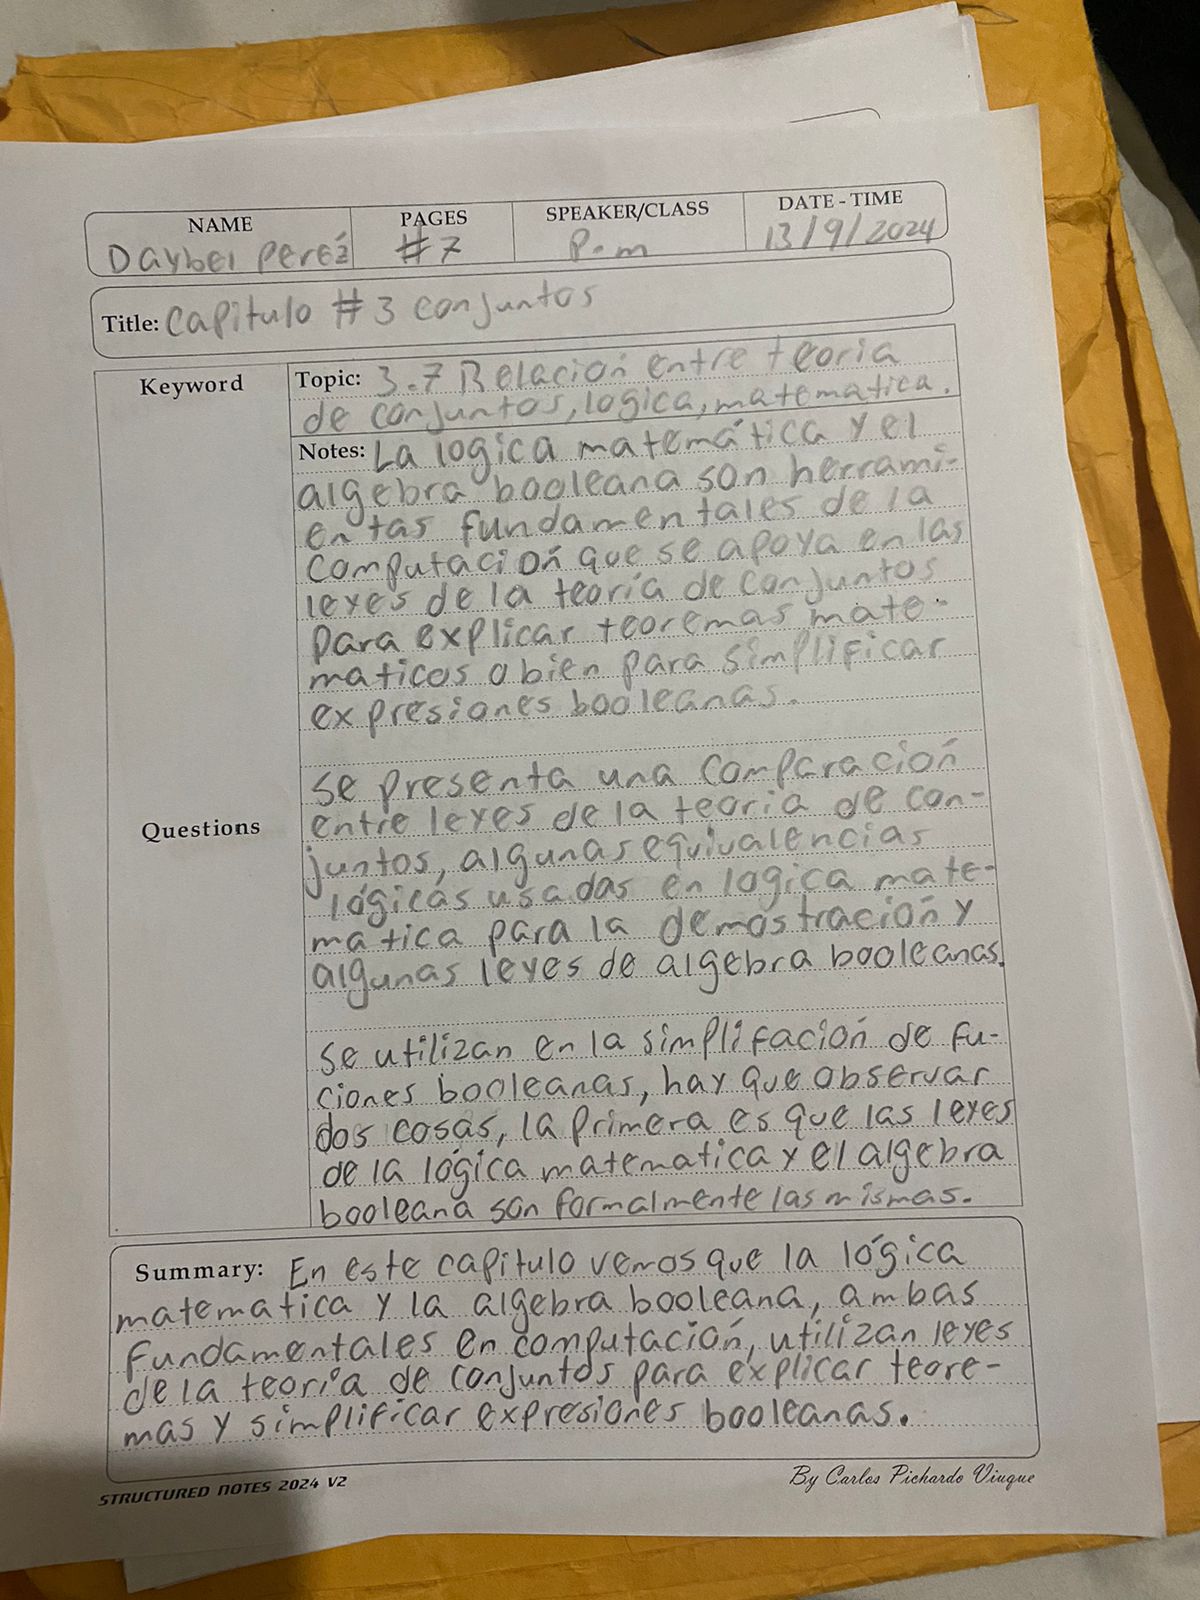 NAME PAGES SPEAKER/CLASS DATE - TIME
Daybel Pereź #7 P.m 13/9/2024
Title: Capitulo #3 conjuntos
Keyword
Topic: 3.7 Relación entre teoria
de conjuntos, logica, matematica.
Notes: La logica matemática y el
algebra booleana son herrami-
entas fundamentales de la
computación que se apoya en las
leyes de la teoría de conjuntos
para explicar teoremas mate-
maticos o bien para simplificar
expresiones booleanas.
se presenta una comparación
entre leyes de la teoria de con-
Questions
juntos, algunas equivalencias
lógicas usadas en logica mate-
matica para la demostración y
algunas leyes de algebra booleanas.
se utilizan en la simplifación de fu-
ciones booleanas, hay que observar
dos cosas, la primera es que las leyes
de la lógica matematica y el algebra
booleana son formalmente las mismas.
Summary: En este capitulo vemos que la lógica
matematica y la algebra booleana, ambas
fundamentales en computación, utilizan leyes
de la teoría de conjuntos para explicar teore-
mas y simplificar expresiones booleanas.
STRUCTURED NOTES 2024 V2
By Carlos Pichardo Viuque